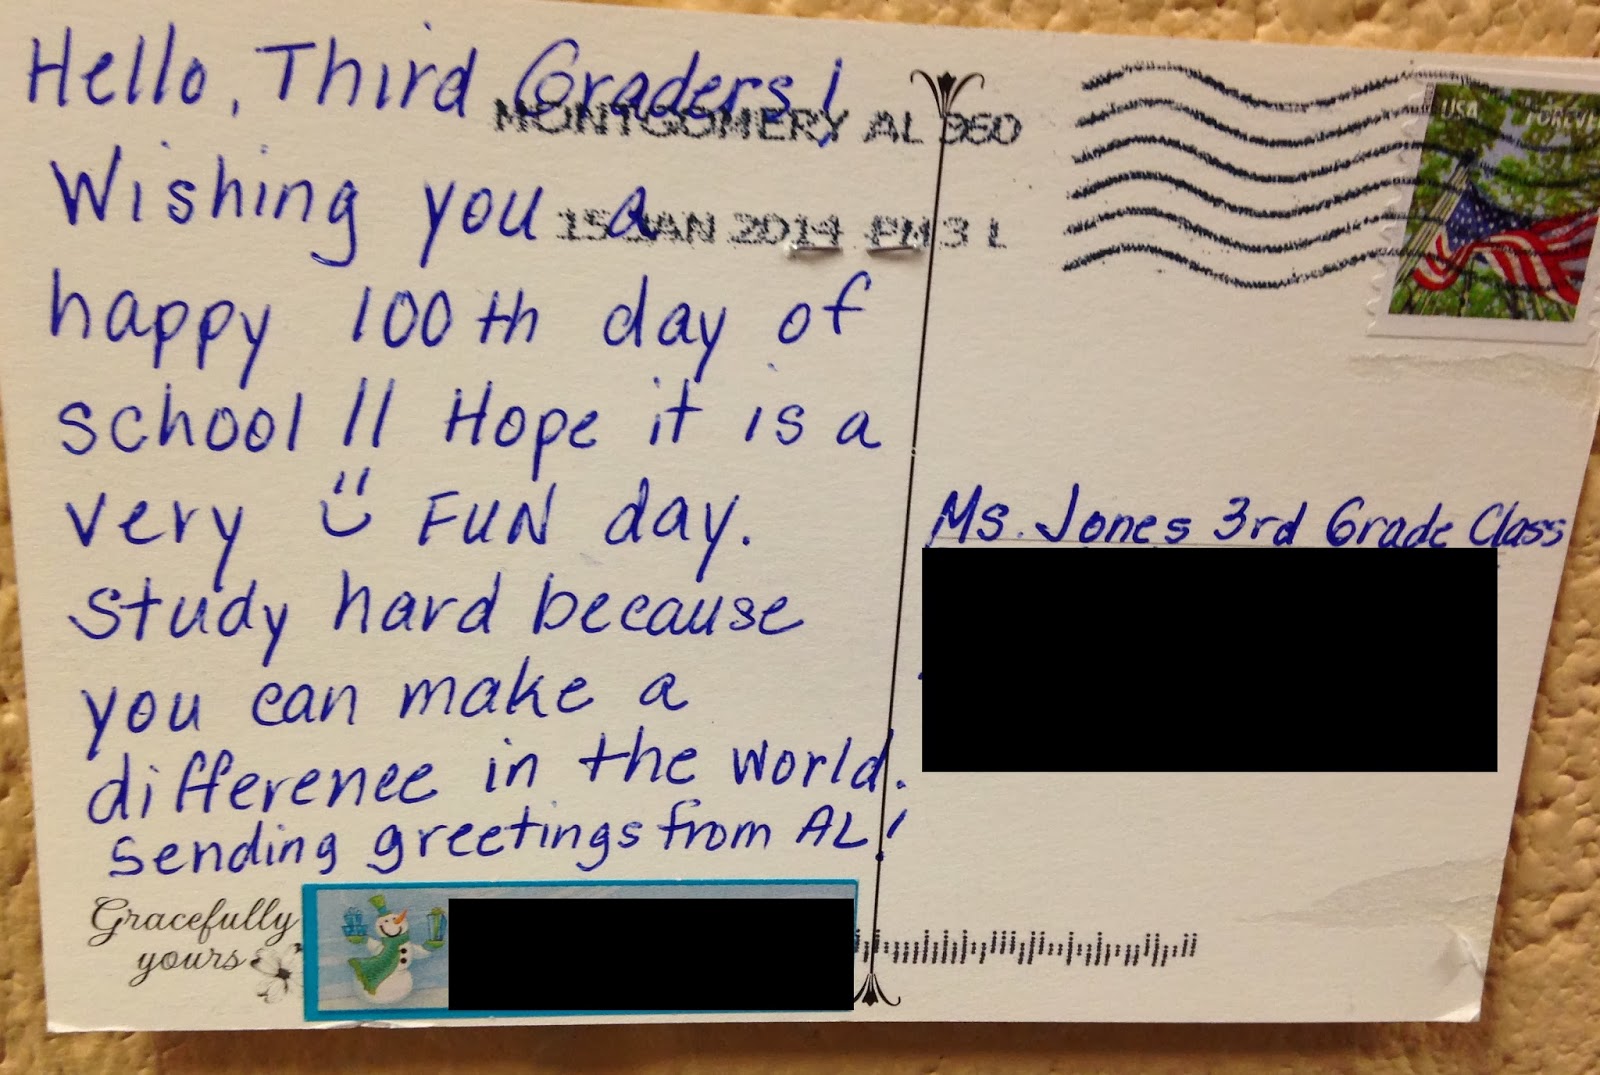 Hello, Third Graders!
MONTGOMERY AL 360
Wishing you a
15 JAN 2014 PM 3 L
happy 100th day of
school!! Hope it is a
very FUN day.
Study hard because
you can make a
difference in the world.
Sending greetings from AL!
Gracefully
yours
USA FOREVE
Ms. Jones 3rd Grade Class